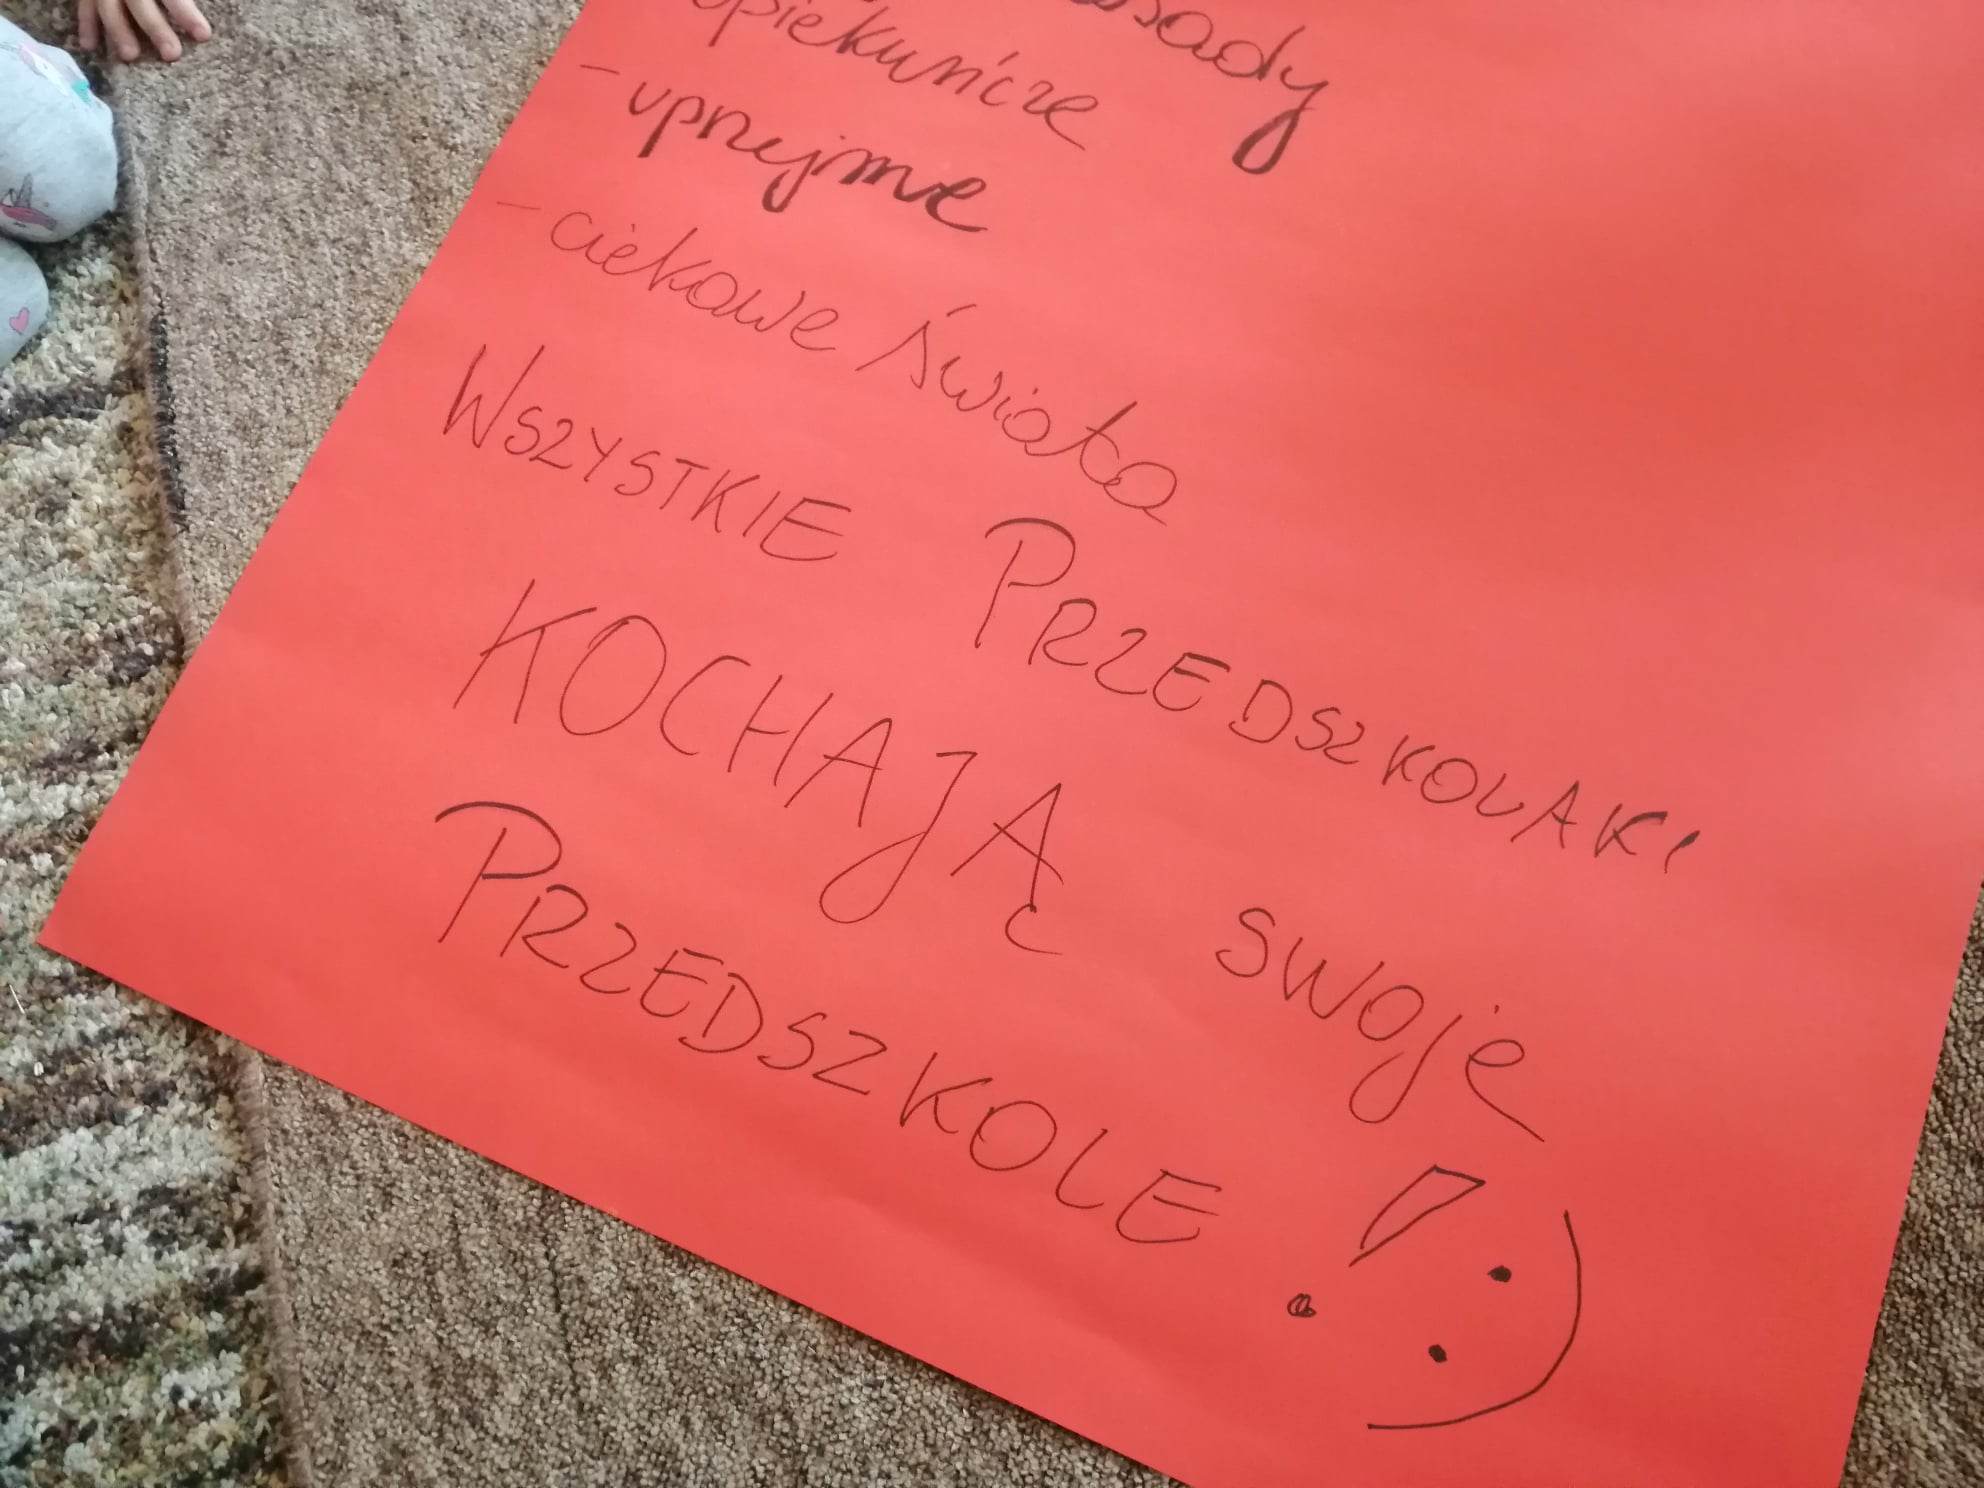 opiekuńcze
- uprzejme
- ciekawe świata
WSZYSTKIE PRZEDSZKOLAKI
KOCHAJĄ SWOJE
PRZEDSZKOLE! :)